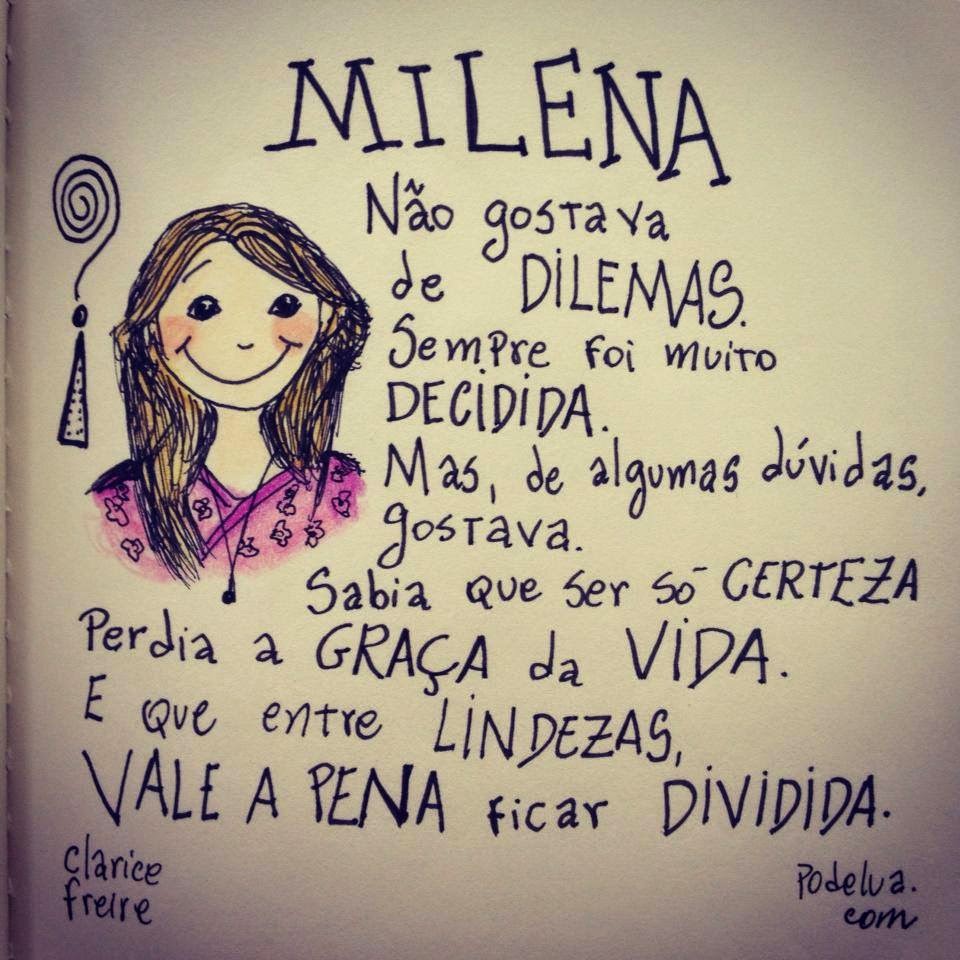 MILENA
Não gostava
de DILEMAS.
Sempre foi muito
DECIDIDA.
Mas, de algumas dúvidas,
gostava.
Sabia que ser só CERTEZA
Perdia a GRAÇA da VIDA.
E que entre LINDEZAS,
VALE A PENA ficar DIVIDIDA.
clarice
freire
Podelua.
com